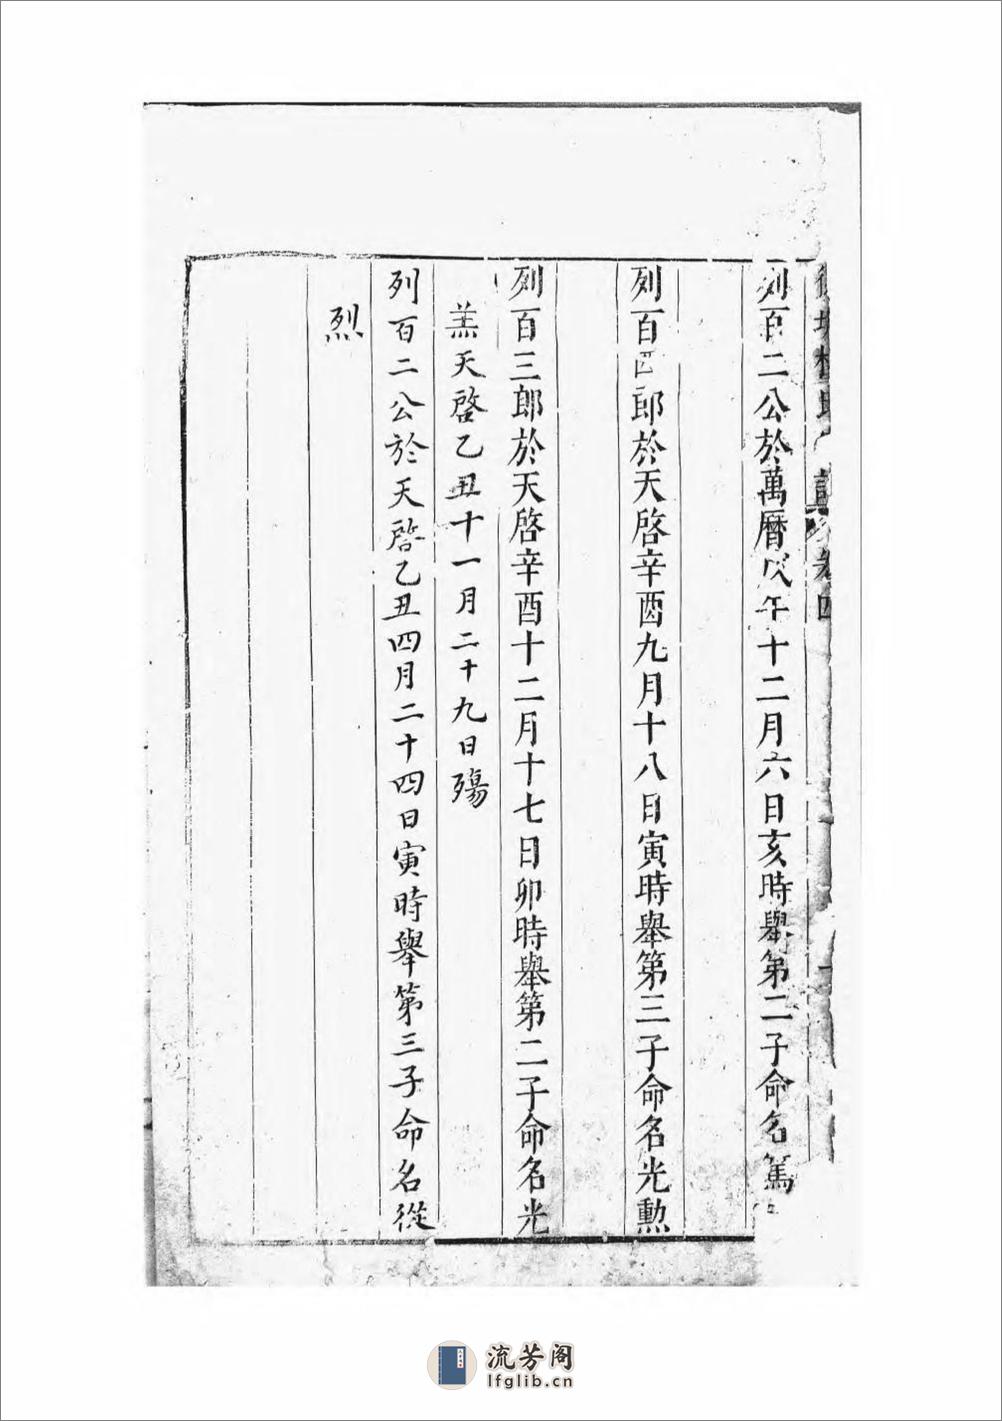 列百二公於萬曆戊午十二月六日亥時舉第二子命名篤
列百四郎於天啓辛酉九月十八日寅時舉第三子命名光勲
列百三郎於天啓辛酉十二月十七日卯時舉第二子命名光
羔天啓乙丑十一月二十九日殤
列百二公於天啓乙丑四月二十四日寅時舉第三子命名從
烈
流芳阁
lfglib.cn